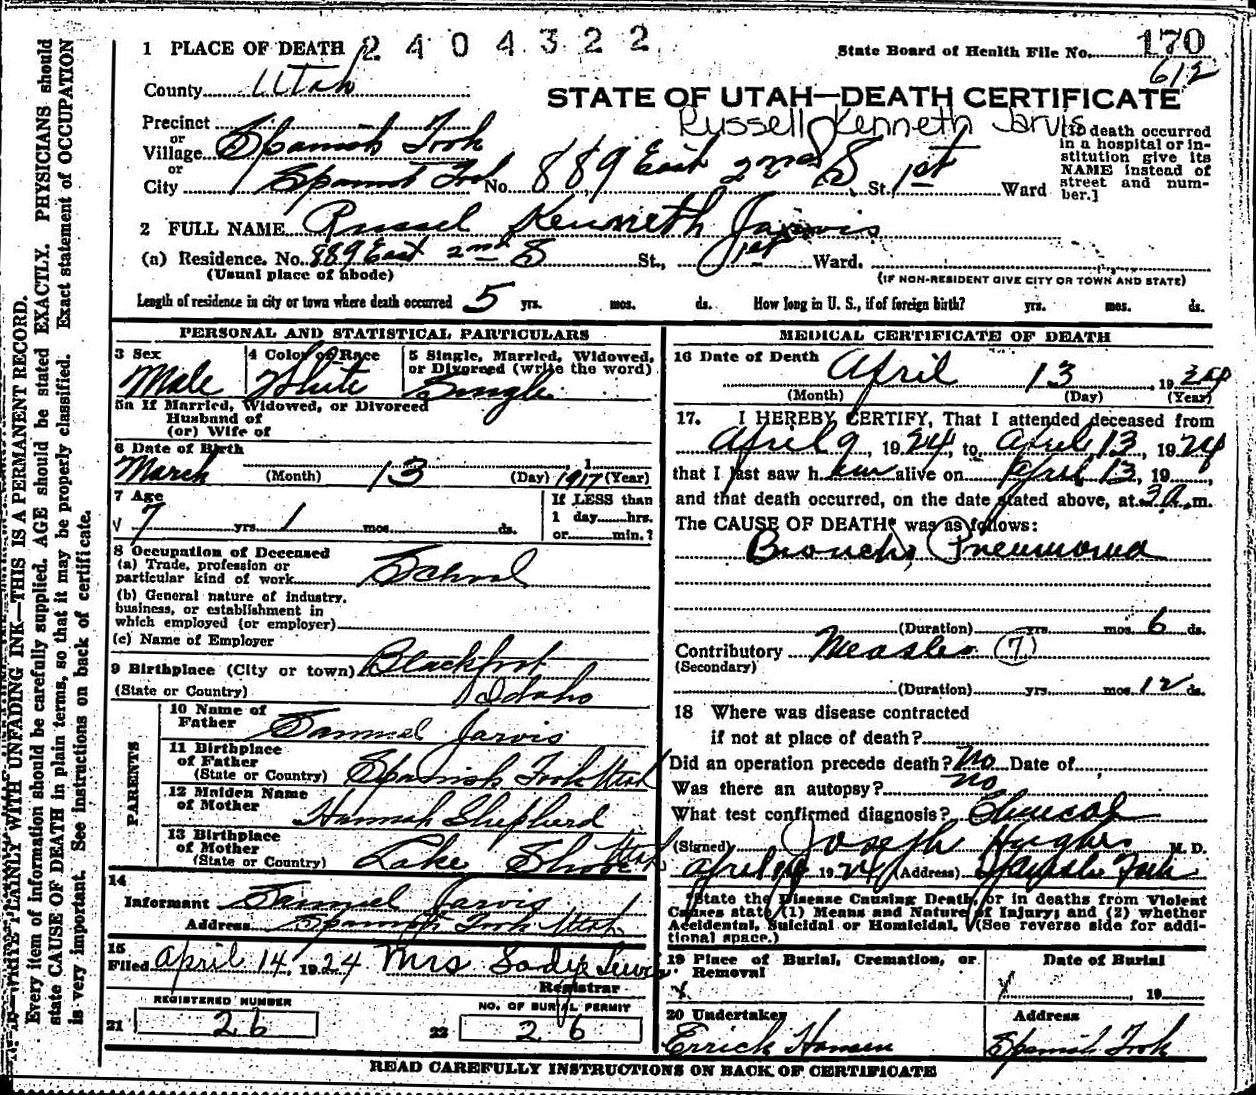 1 PLACE OF DEATH 2404322
State Board of Health File No. 170
612
County Utah
STATE OF UTAH—DEATH CERTIFICATE
Russell Kenneth Jarvis
Precinct
or
Village Spanish Fork
or
City Spanish Fork No. 889 East 2nd S St, 1st Ward
[If death occurred
in a hospital or in-
stitution give its
NAME instead of
street and num-
ber.]
2 FULL NAME Russel Kenneth Jarvis
(a) Residence. No. 889 East 2nd S St., 1st Ward.
(Usual place of abode)
(IF NON-RESIDENT GIVE CITY OR TOWN AND STATE)
Length of residence in city or town where death occurred 5 yrs. mos. ds. How long in U. S., if of foreign birth? yrs. mos. ds.
PERSONAL AND STATISTICAL PARTICULARS
3 Sex
Male
4 Color or Race
White
5 Single, Married, Widowed,
or Divorced (write the word)
Single
5a If Married, Widowed, or Divorced
Husband of
(or) Wife of
6 Date of Birth
March 13 1917
(Month) (Day) (Year)
7 Age
7 yrs. 1 mos. ds.
If LESS than
1 day hrs.
or min.?
8 Occupation of Deceased
(a) Trade, profession or
particular kind of work School
(b) General nature of industry,
business, or establishment in
which employed (or employer)
(c) Name of Employer
9 Birthplace (City or town) Blackfoot
(State or Country) Idaho
PARENTS
10 Name of
Father Samuel Jarvis
11 Birthplace
of Father
(State or Country) Spanish Fork Utah
12 Maiden Name
of Mother Hannah Shepherd
13 Birthplace
of Mother
(State or Country) Lake Shore Utah
14
Informant Samuel Jarvis
Address Spanish Fork Utah
15
Filed April 14, 1924 Mrs
Registrar
REGISTERED NUMBER
21 26
NO. OF BURIAL PERMIT
22 26
MEDICAL CERTIFICATE OF DEATH
16 Date of Death
April 13, 1924
(Month) (Day) (Year)
17. I HEREBY CERTIFY, That I attended deceased from
April 9, 1924, to April 13, 1924
that I last saw him alive on April 13, 19 ,
and that death occurred, on the date stated above, at 3 a.m.
The CAUSE OF DEATH* was as follows:
Broncho Pneumonia
(Duration) yrs. mos. 6 ds.
Contributory Measles (7)
(Secondary)
(Duration) yrs. mos. 12 ds.
18 Where was disease contracted
if not at place of death?
Did an operation precede death? No Date of
Was there an autopsy? no
What test confirmed diagnosis? Clinical
(Signed) Joseph Hughes M. D.
April 1924 (Address) Spanish Fork
*State the Disease Causing Death, or in deaths from Violent
Causes state (1) Means and Nature of Injury; and (2) whether
Accidental, Suicidal or Homicidal. (See reverse side for addi-
tional space.)
19 Place of Burial, Cremation, or
Removal
x
Date of Burial
x , 19
20 Undertaker
Errick Hansen
Address
Spanish Fork
READ CAREFULLY INSTRUCTIONS ON BACK OF CERTIFICATE
WRITE PLAINLY WITH UNFADING INK—THIS IS A PERMANENT RECORD.
Every item of information should be carefully supplied. AGE should be stated EXACTLY. PHYSICIANS should
state CAUSE OF DEATH in plain terms, so that it may be properly classified. Exact statement of OCCUPATION
is very important. See instructions on back of certificate.